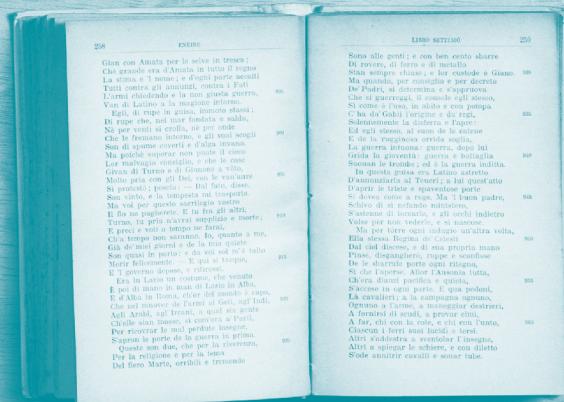 258
ENEIDE
Gian con Amata per le selve in tresca;
Ché grande era d'Amata in tutto il regno
La stima e 'l nome; e d'ogni parte accolti
Tutti contra gli annunzi, contra i Fati
L'armi chiedendo e la non giusta guerra,
Van di Latino a la magione intorno.
Egli, di rupe in guisa, immoto stassi;
Di rupe che, nel mar fondata e salda,
Né per venti si crolla, né per onde
Che le fremano intorno, e gli suoi scogli
Son di spume coverti e d'alga invano.
Ma poiché superar non puote il cieco
Lor malvagio consiglio, e che le cose
Givan di Turno e di Giunone a vóto,
Molto pria con gli Dei, con le van'aure
Si protestò; poscia: — Dal fato, disse,
Son vinto, e la tempesta mi trasporta.
Ma voi per questo sacrilegio vostro
Il fio ne pagherete. E tu fra gli altri,
Turno, tu pria n'avrai supplizio e morte;
E preci e voti a tempo ne farai,
Ch'a tempo non saranno. Io, quanto a me,
Già de' miei giorni e de la mia quiete
Son quasi in porto: e da voi sol m'è tolto
Morir felicemente. — E qui si tacque,
E 'l governo depose, e ritirossi.
Era in Lazio un costume, che venuto
È poi di mano in man di Lazio in Alba,
E d'Alba in Roma, ch'or del mondo è capo,
Che nel muover de l'armi ai Geti, agl'Indi,
Agli Arabi, agl'Ircani, a qual sia gente
Ch'elle sian mosse, sì com'ora a' Parti,
Per ricovrar le mal perdute insegne,
S'apron le porte de la guerra in prima.
Queste son due, che per la riverenza,
Per la religione e per la tema
Del fiero Marte, orribili e tremende
LIBRO SETTIMO
259
Sono alle genti; e con ben cento sbarre
Di rovere, di ferro e di metallo
Stan sempre chiuse; e lor custode è Giano.
Ma quando, per consiglio e per decreto
De' Padri, si determina e s'appruova
Che si guerreggi, il consolo egli stesso,
Sì come è l'uso, in abito e con pompa
C'ha da' Gabi l'origine e da' regi,
Solennemente la disferra e l'apre:
Ed egli stesso, al suon de le catene
E de la rugginosa orrida soglia,
La guerra intuona: guerra, dopo lui
Grida la gioventù: guerra e battaglia
Suonan le trombe; ed è la guerra indìtta.
In questa guisa era Latino astretto
D'annunziarla ai Teucri; a lui quest'atto
D'aprir le triste e spaventose porte
Si dovea come a rege. Ma 'l buon padre,
Schivo di sì nefando ministero,
S'astenne di toccarle, e gli occhi indietro
Volse per non vederle, e si nascose.
Ma per tôrre ogni indugio un'altra volta,
Ella stessa Regina de' Celesti
Dal ciel discese, e di sua propria mano
Pinse, disgangherò, ruppe e sconfisse
De le sbarrate porte ogni ritegno,
Sì che l'aperse. Allor l'Ausonia tutta,
Ch'era dianzi pacifica e quieta,
S'accese in ogni parte. E qua pedoni,
Là cavalieri; a la campagna ognuno,
Ognuno a l'arme, a maneggiar destrieri,
A fornirsi di scudi, a provar elmi,
A far, chi con la cote, e chi con l'unto,
Ciascun i ferri suoi lucidi e tersi.
Altri s'addestra a sventolar l'insegne,
Altri a spiegar le schiere, e con diletto
S'ode annitrir cavalli e sonar tube.